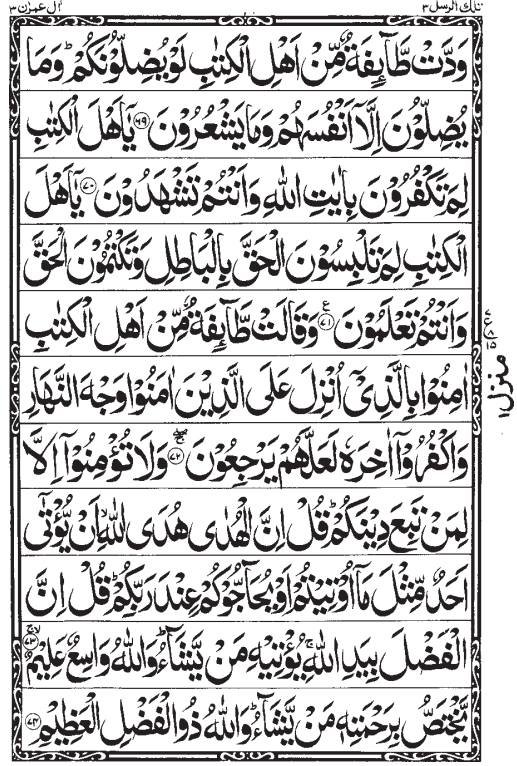 تلك الرسل ٣
ال عمرٰن ٣
وَدَّتْ طَّآىِٕفَةٌ مِّنْ اَهْلِ الْكِتٰبِ لَوْ يُضِلُّوْنَكُمْؕ وَمَا
يُضِلُّوْنَ اِلَّاۤ اَنْفُسَهُمْ وَمَا يَشْعُرُوْنَ ۶۹ يٰۤاَهْلَ الْكِتٰبِ
لِمَ تَكْفُرُوْنَ بِاٰيٰتِ اللّٰهِ وَاَنْتُمْ تَشْهَدُوْنَ ۷۰ يٰۤاَهْلَ
الْكِتٰبِ لِمَ تَلْبِسُوْنَ الْحَقَّ بِالْبَاطِلِ وَتَكْتُمُوْنَ الْحَقَّ
وَاَنْتُمْ تَعْلَمُوْنَ ۷۱ ع وَقَالَتْ طَّآىِٕفَةٌ مِّنْ اَهْلِ الْكِتٰبِ
اٰمِنُوْا بِالَّذِيْۤ اُنْزِلَ عَلَى الَّذِيْنَ اٰمَنُوْا وَجْهَ النَّهَارِ
وَاكْفُرُوْۤا اٰخِرَهٗ لَعَلَّهُمْ يَرْجِعُوْنَ ۷۲ وَلَا تُؤْمِنُوْۤا اِلَّا
لِمَنْ تَبِعَ دِيْنَكُمْؕ قُلْ اِنَّ الْهُدٰى هُدَى اللّٰهِۙ اَنْ يُّؤْتٰۤى
اَحَدٌ مِّثْلَ مَاۤ اُوْتِيْتُمْ اَوْ يُحَآجُّوْكُمْ عِنْدَ رَبِّكُمْؕ قُلْ اِنَّ
الْفَضْلَ بِيَدِ اللّٰهِۚ يُؤْتِيْهِ مَنْ يَّشَآءُؕ وَاللّٰهُ وَاسِعٌ عَلِيْمٌ ۷۳
يَّخْتَصُّ بِرَحْمَتِهٖ مَنْ يَّشَآءُؕ وَاللّٰهُ ذُو الْفَضْلِ الْعَظِيْمِ ۷۴
منزل ۱